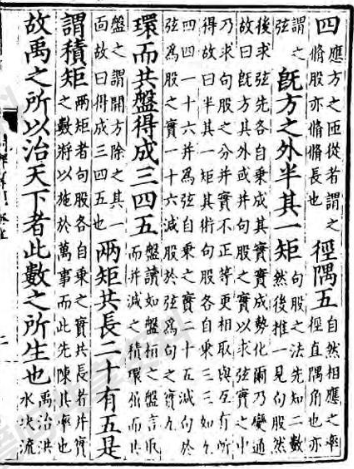 四應方之匝從者謂之
脩股亦脩脩長也
徑隅五自然相應之率
徑直隅角也亦
謂之
弦
既方之外半其一矩句股之法先知二數
然後推一見句股然
後求弦先各自乘成其實實成勢化爾乃變通
故曰既方其外或并句股之實以求弦實之中
乃求句股之分并實不正等更相取與互有所
得故曰半其一矩其術句股各自乘三三如九
四四一十六并爲弦自乘之實二十五減句於
弦爲股之實一十六減股於弦爲句之實九
環而共盤得成三四五盤讀如盤桓之盤言取
而并減之積環屈而共
盤之謂開方除之其一
面故曰得成三四五也
兩矩共長二十有五是
謂積矩兩矩者句股各自乘之實共長者并實
之數將以施於萬事而此先陳其率也
故禹之所以治天下者此數之所生也禹治洪
水決流